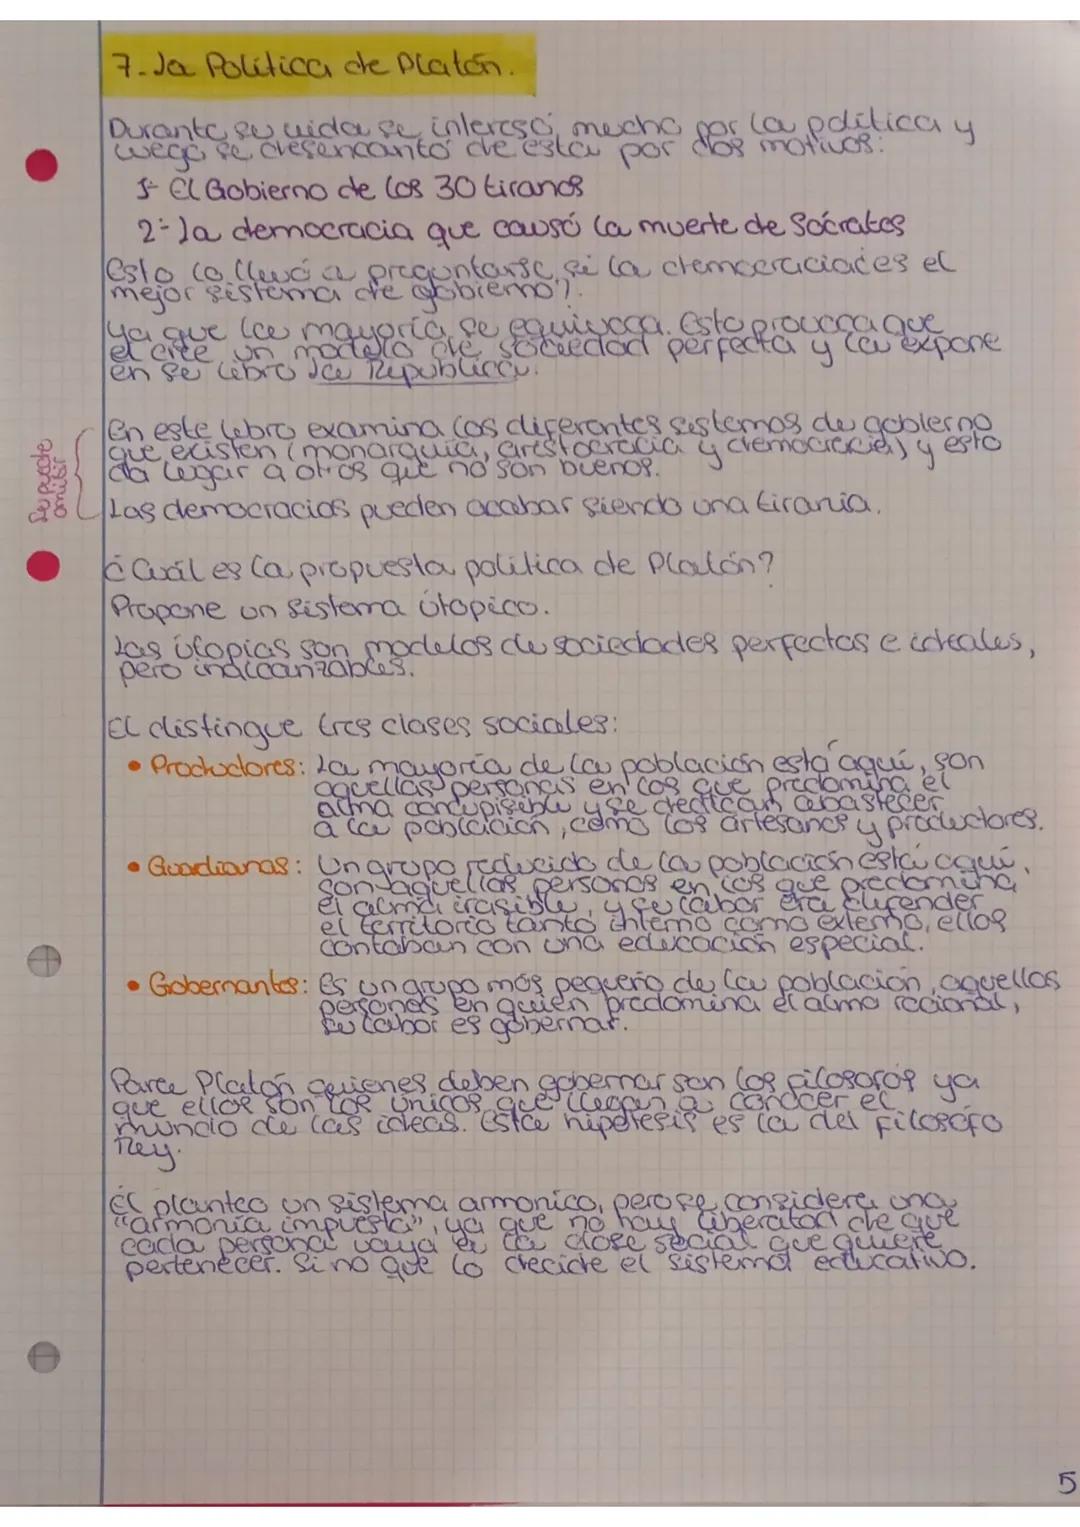 7-La Política de Platón.
Durante su vida se interesó mucho por la política y
luego se desencantó de esta por dos motivos:
1- El Gobierno de los 30 tiranos
2- La democracia que causó la muerte de Sócrates
Esto lo llevó a preguntarse si la democracia es el
mejor sistema de gobierno?.
Ya que la mayoría se equivoca. Esto provoca que
el cree un modelo de sociedad perfecta y la expone
en su libro La República.
En este libro examina los diferentes sistemas de gobierno
que existen (monarquía, aristocracia y democracia) y esto
da lugar a otros que no son buenos.
Se puede
omitir
Las democracias pueden acabar siendo una tirania.
¿Cuál es la propuesta política de Platón?
Propone un sistema útopico.
Las útopias son modelos de sociedades perfectas e ideales,
pero inalcanzables.
El distingue tres clases sociales:
• Productores: La mayoría de la población está aquí, son
aquellas personas en los que predomina el
alma concupisible y se dedican abastecer
a la población, como los artesanos y productores.
• Guardianas: Un grupo reducido de la población está aquí,
son aquellas personas en los que predomina
el alma irasible, y su labor era defender
el territorio tanto interno como externo, ellos
contaban con una educación especial.
• Gobernantes: Es un grupo más pequeño de la población, aquellas
personas en quien predomina el alma racional,
su labor es gobernar.
Para Platón quienes deben gobernar son los filosofos ya
que ellos son los únicos que llegan a conocer el
mundo de las ideas. Esta hipotesis es la del Filosofo
Rey.
Él planteo un sistema armonico, pero se considera una
"armonía impuesta", ya que no hay libertad de que
cada persona vaya a la clase social que quiere
pertenecer. Si no que lo decide el sistema educativo.
5